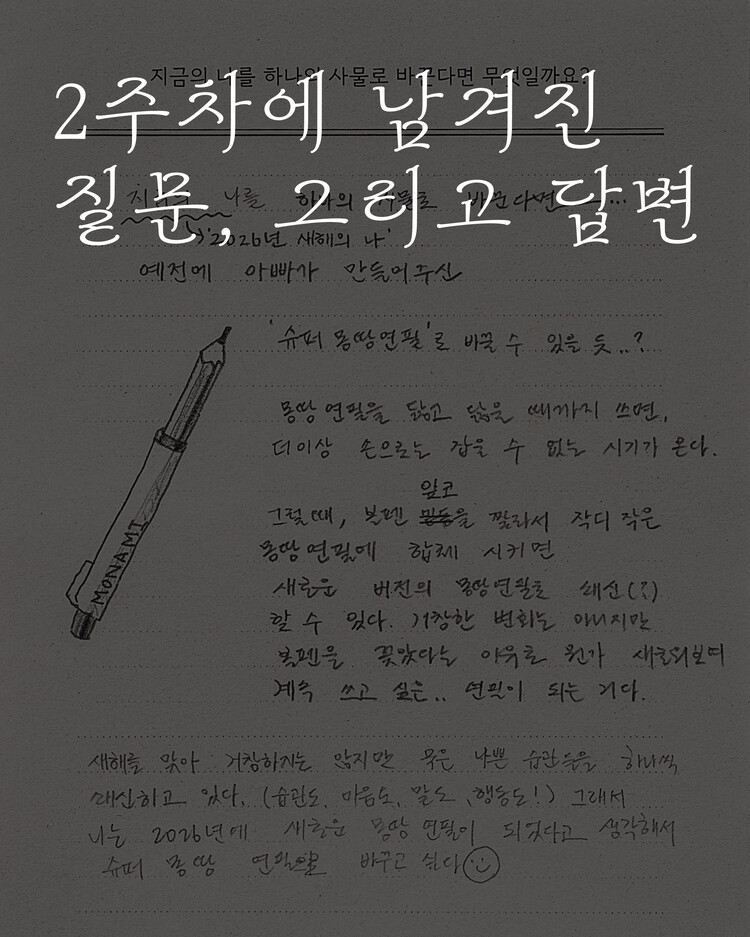 지금의 나를 하나의 사물로 바꾼다면 무엇일까요?
2주차에 남겨진
질문, 그리고 답변
지금의 나를 하나의 사물로 바꾼다면...
'2026년 새해의 나'
예전에 아빠가 만들어주신
'슈퍼 몽땅연필'로 바꿀 수 있을 듯..?
몽땅연필을 닳고 닳을 때까지 쓰면,
더이상 손으로는 잡을 수 없는 시기가 온다.
입코
그럴때, 볼펜 을 잘라서 작디 작은
몽땅연필에 합체 시키면
새로운 버전의 몽땅연필로 쇄신(?)
할 수 있다. 거창한 변화는 아니지만
볼펜을 꽂았다는 이유로 뭔가 새로워보여
계속 쓰고 싶은.. 연필이 되는 거다.
MONAMI
새해를 맞아 거창하지는 않지만 묵은 나쁜 습관들을 하나씩
쇄신하고 있다. (습관도, 마음도, 말도, 행동도!) 그래서
나는 2026년에 새로운 몽땅 연필이 되었다고 생각해서
슈퍼 몽땅 연필로 바꾸고 싶다